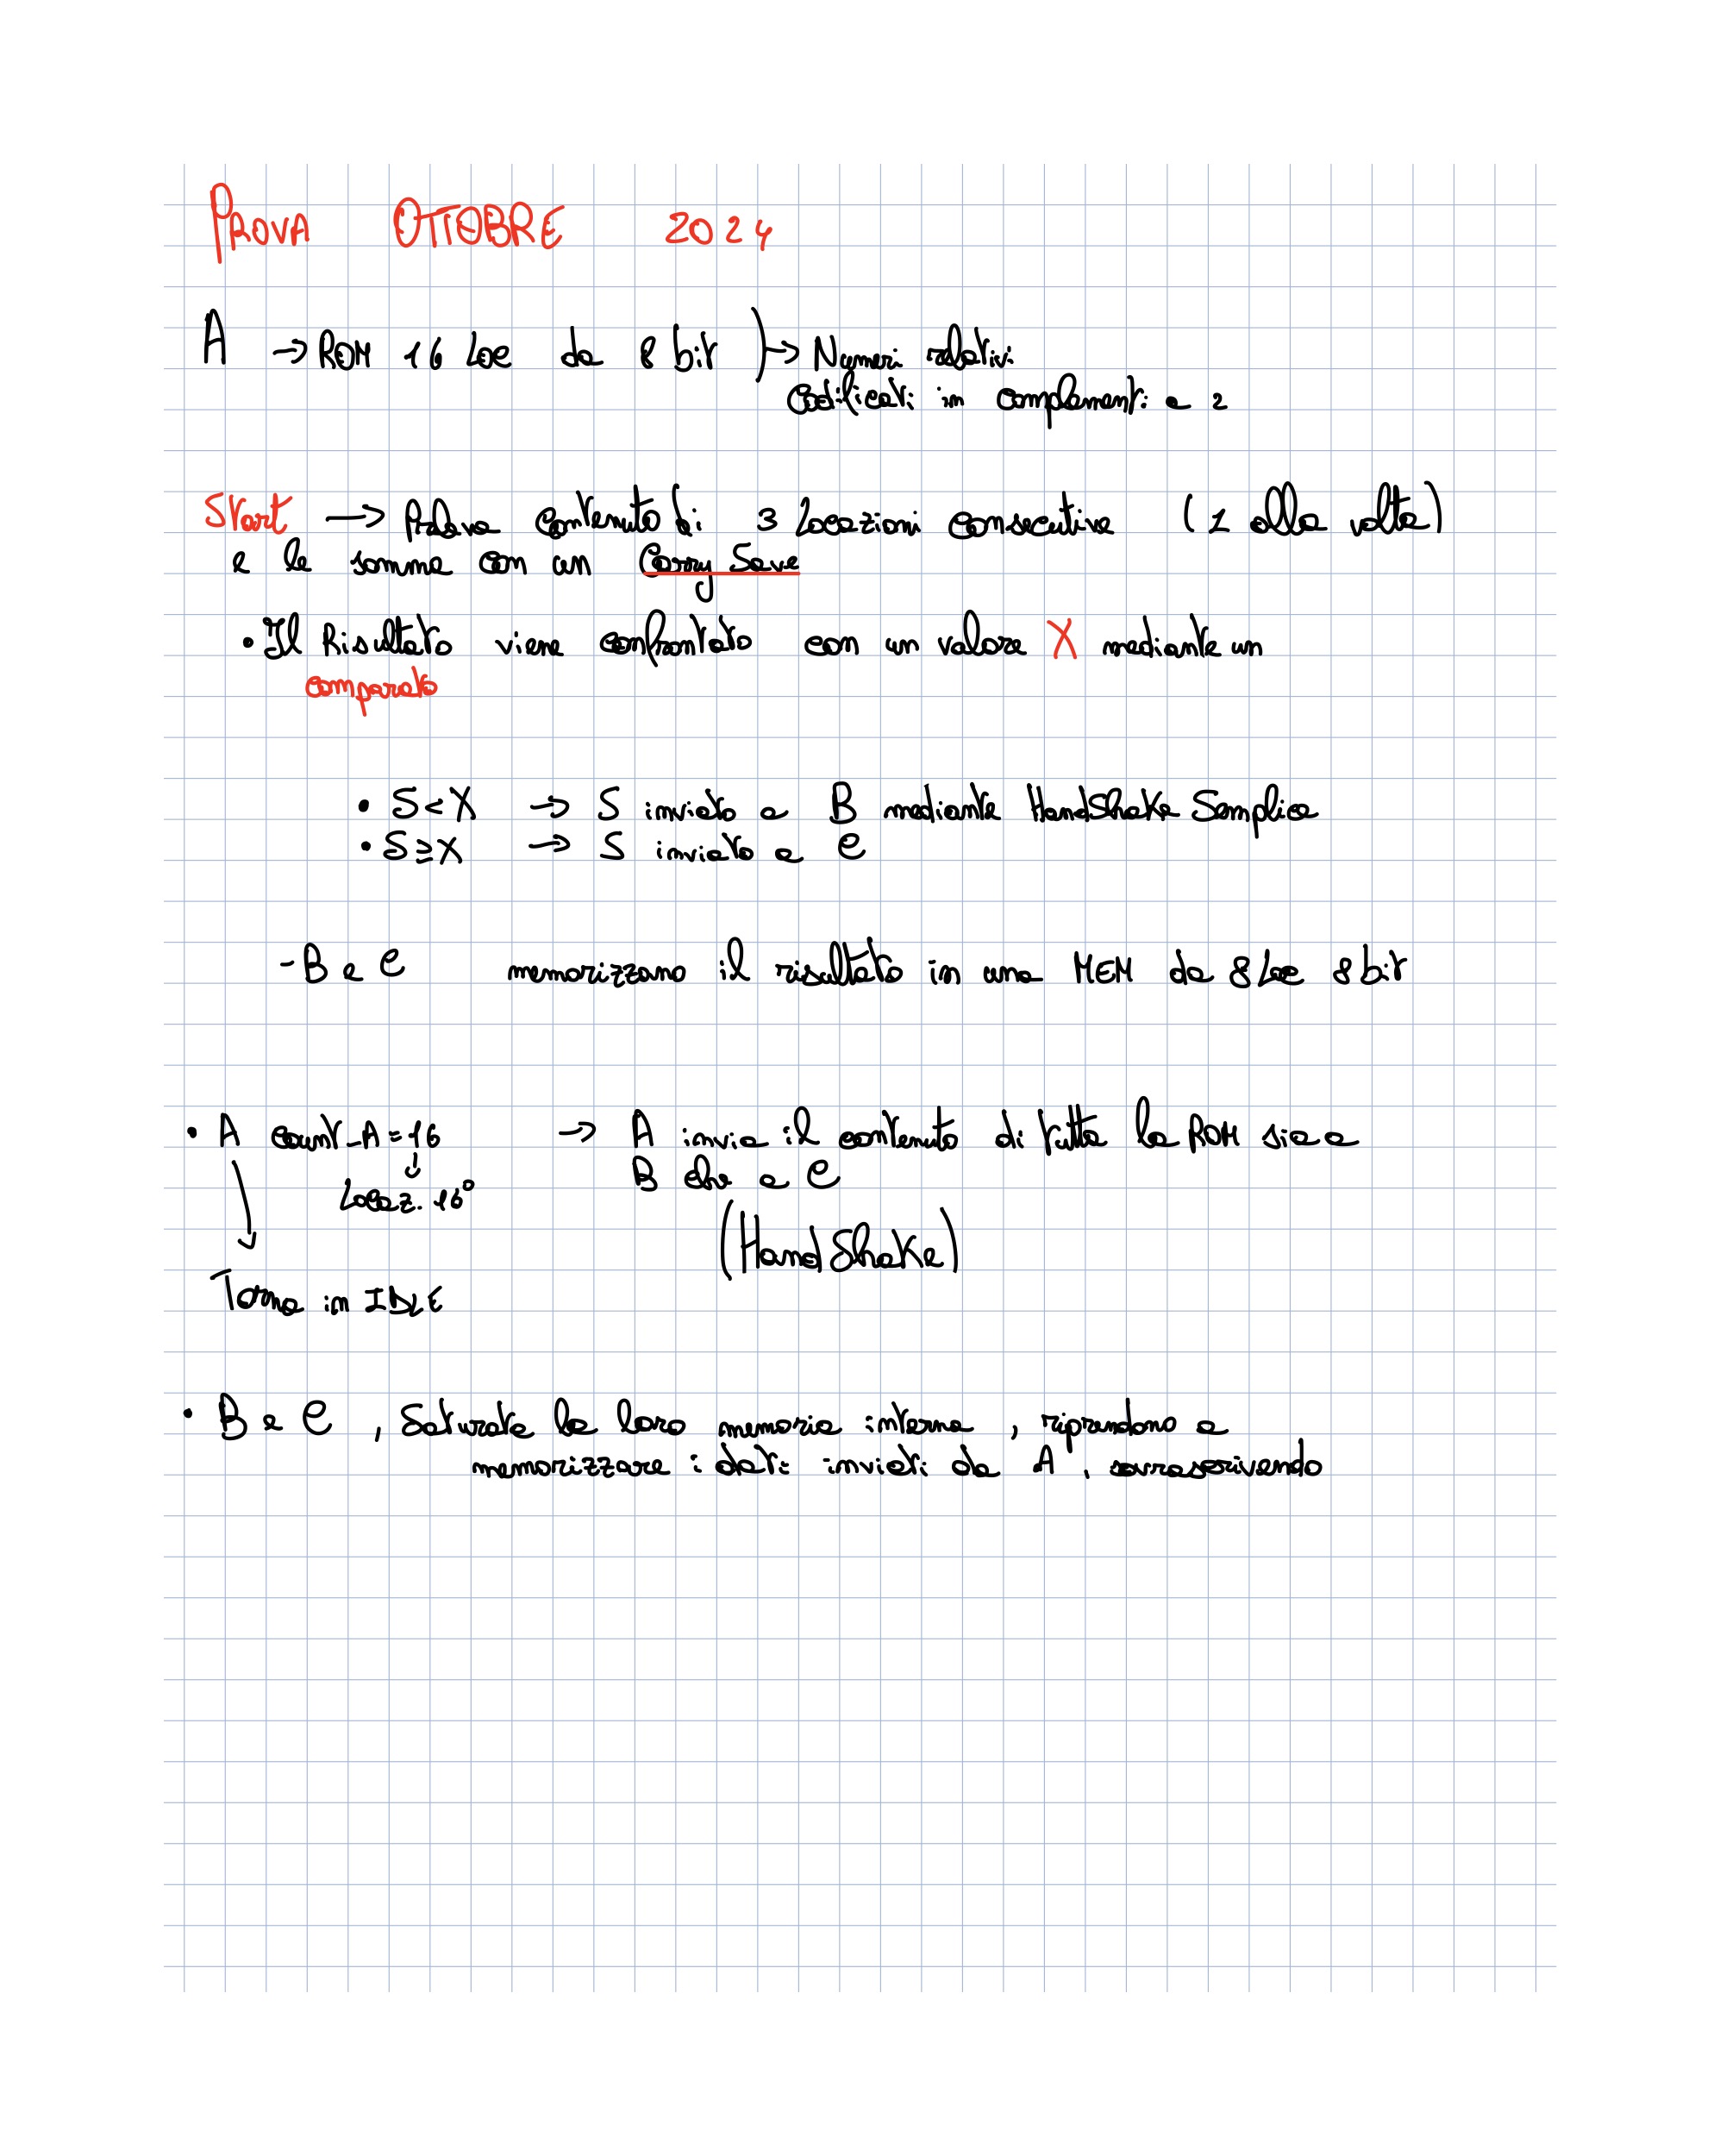 PROVA OTTOBRE 2024
A → ROM 16 Loc da 8 bit ) → Numeri relativi
codificati in complementi a 2
Start → Preleva contenuto di 3 locazioni consecutive (1 alla volta)
e le somma con un Carry Save
• Il Risultato viene confrontato con un valore X mediante un
comparato
• S < X → S inviato a B mediante HandShake Semplice
• S ≥ X → S inviato a C
- B e C memorizzano il risultato in una MEM da 8 Loc 8 bit
• A count_A = 16 → A invia il contenuto di tutta la ROM sia a
B che a C
Locaz. 16°
(HandShake)
Torna in IDLE
• B e C, Saturata la loro memoria interna, riprendono a
memorizzare i dati inviati da A, sovrascrivendo